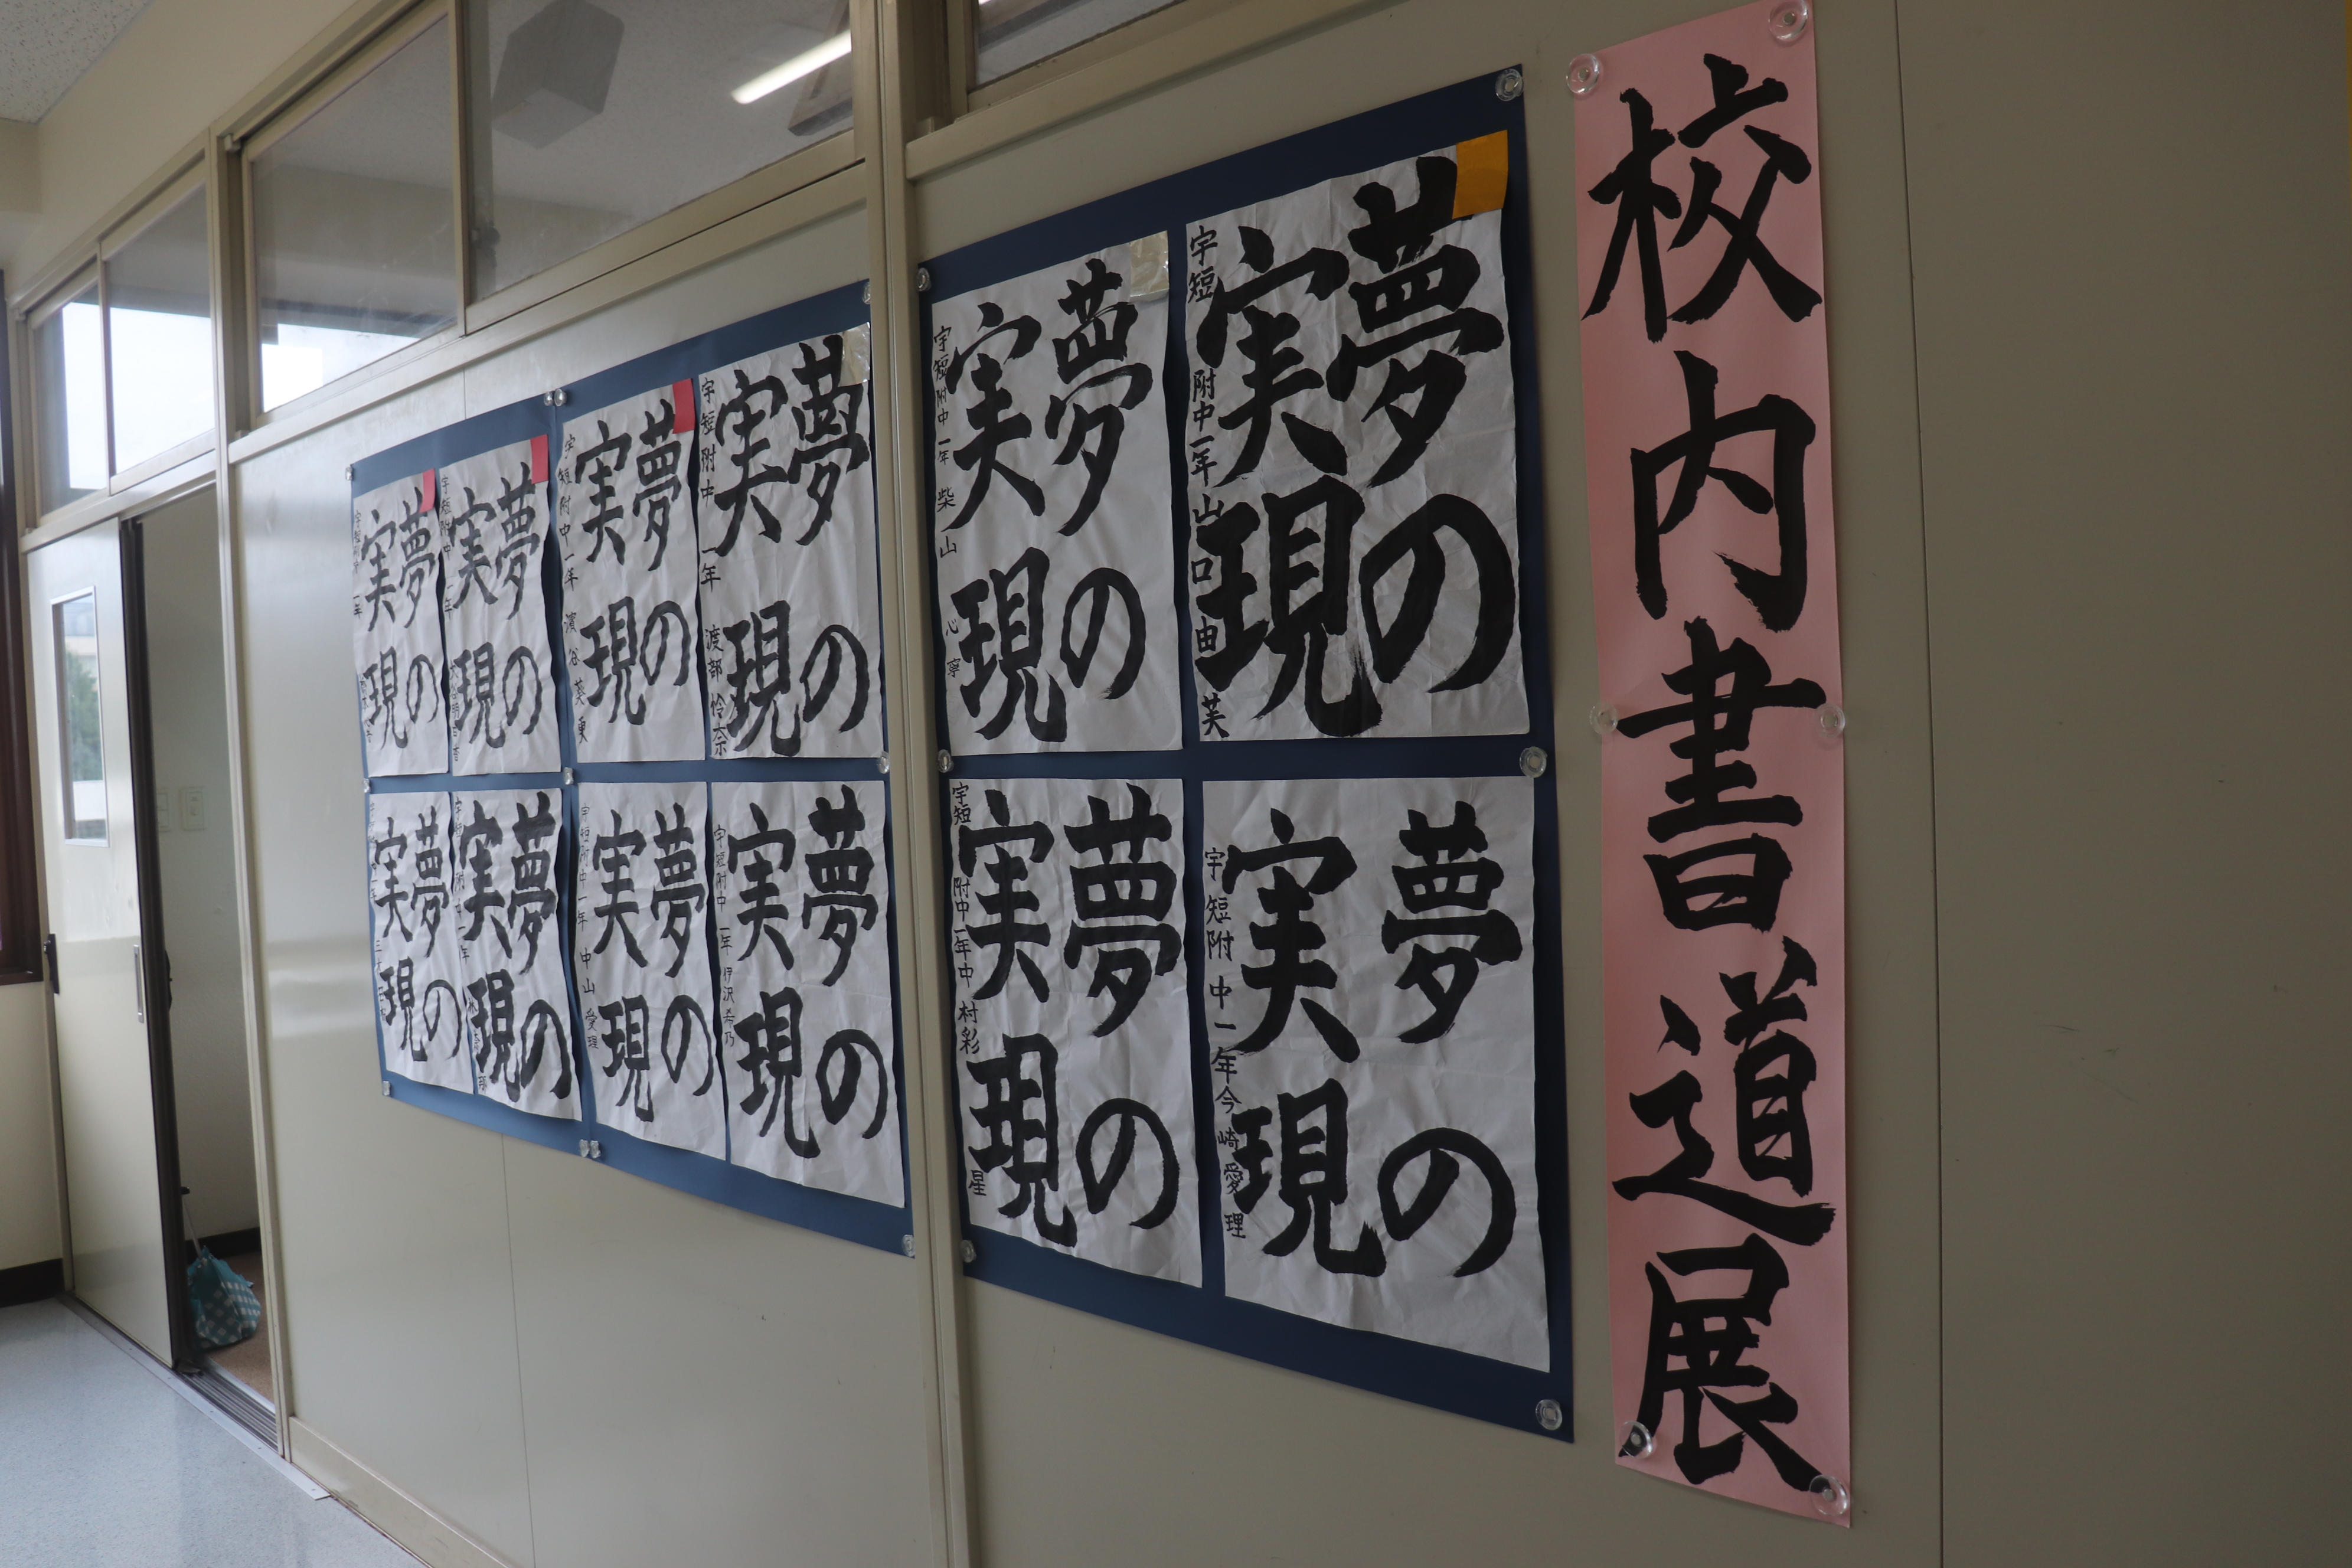 校内書道展
夢の
実現
宇短附中一年山口由芙
夢の
実現
宇短附中一年 柴山心寧
夢の
実現
宇短附中一年今崎愛理
夢の
実現
宇短附中一年中村彩星
夢の
実現
宇短附中一年 渡部怜奈
夢の
実現
宇短附中一年
夢の
実現
宇短附中一年
夢の
実現
一年
夢の
実現
宇短附中一年 伊沢希乃
夢の
実現
宇短附中一年 中山愛理
夢の
実現
一年
夢の
実現
一年